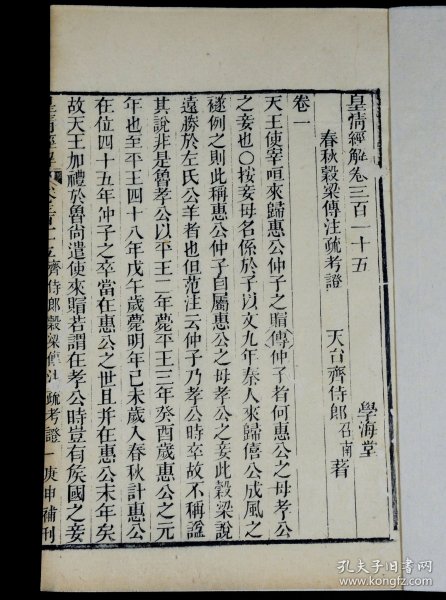 皇清經解卷三百一十五
學海堂
春秋穀梁傳注疏考證
天台齊侍郎召南著
卷一
天王使宰咺來歸惠公仲子之賵傳仲子者何惠公之母孝公
之妾也○按妾母名係於子以文九年秦人來歸僖公成風之
襚例之則此稱惠公仲子自屬惠公之母孝公之妾此穀梁說
遠勝於左氏公羊者也但范注云仲子乃孝公時卒故不稱諡
其說非是魯孝公以平王二年薨平王三年癸酉歲惠公之元
年也至平王四十八年戊午歲薨明年己未歲入春秋計惠公
在位四十五年仲子之卒當在惠公之世且并在惠公末年矣
故天王加禮於魯尚遣使來賵若謂在孝公時豈有矦國之妾
齊侍郎穀梁傳注疏考證
一
庚申補刊
孔夫子旧书网
www.kongfz.com